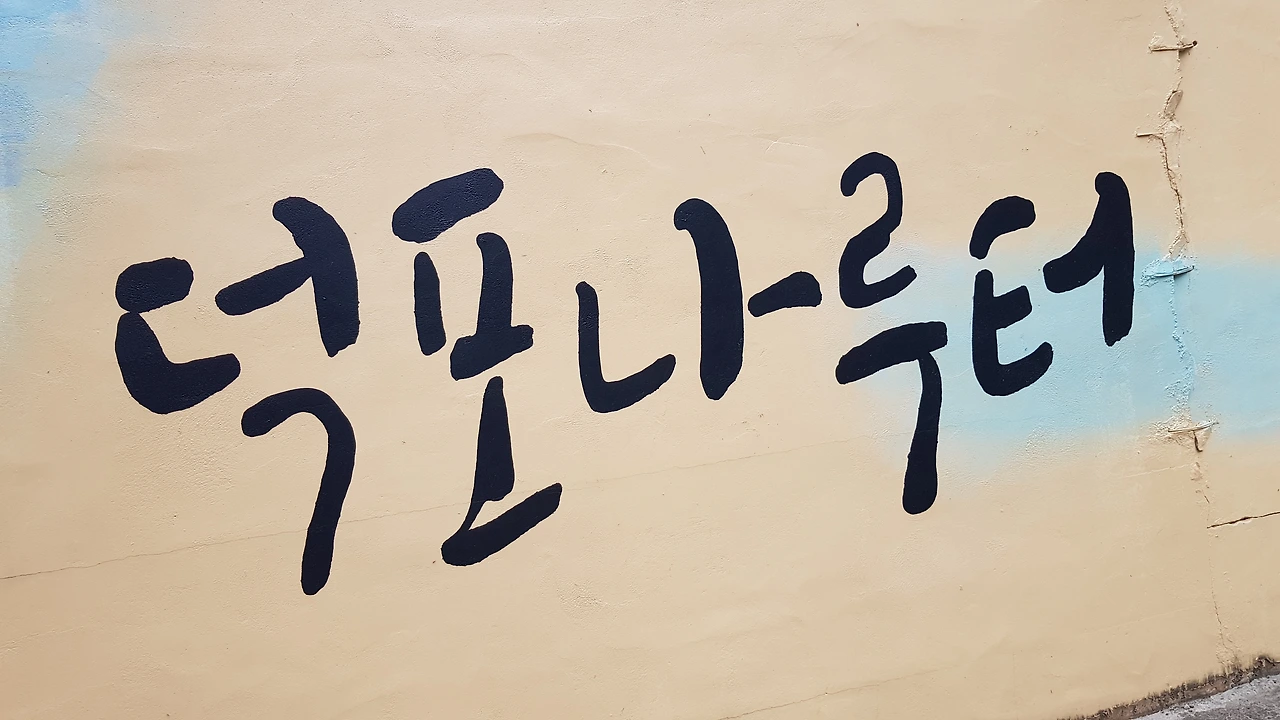 덕포나루터